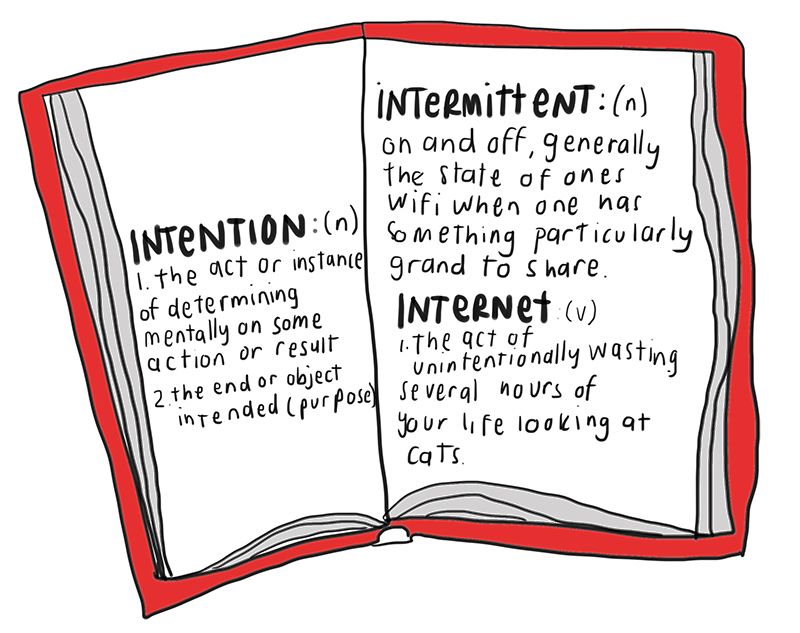 INTENTION: (n)
1. the act or instance
of determining
mentally on some
action or result
2. the end or object
intended (purpose)
INTERMITTENT: (n)
on and off, generally
the state of ones
wifi when one has
something particularly
grand to share.
INTERNET: (v)
1. The act of
unintentionally wasting
several hours of
your life looking at
cats.